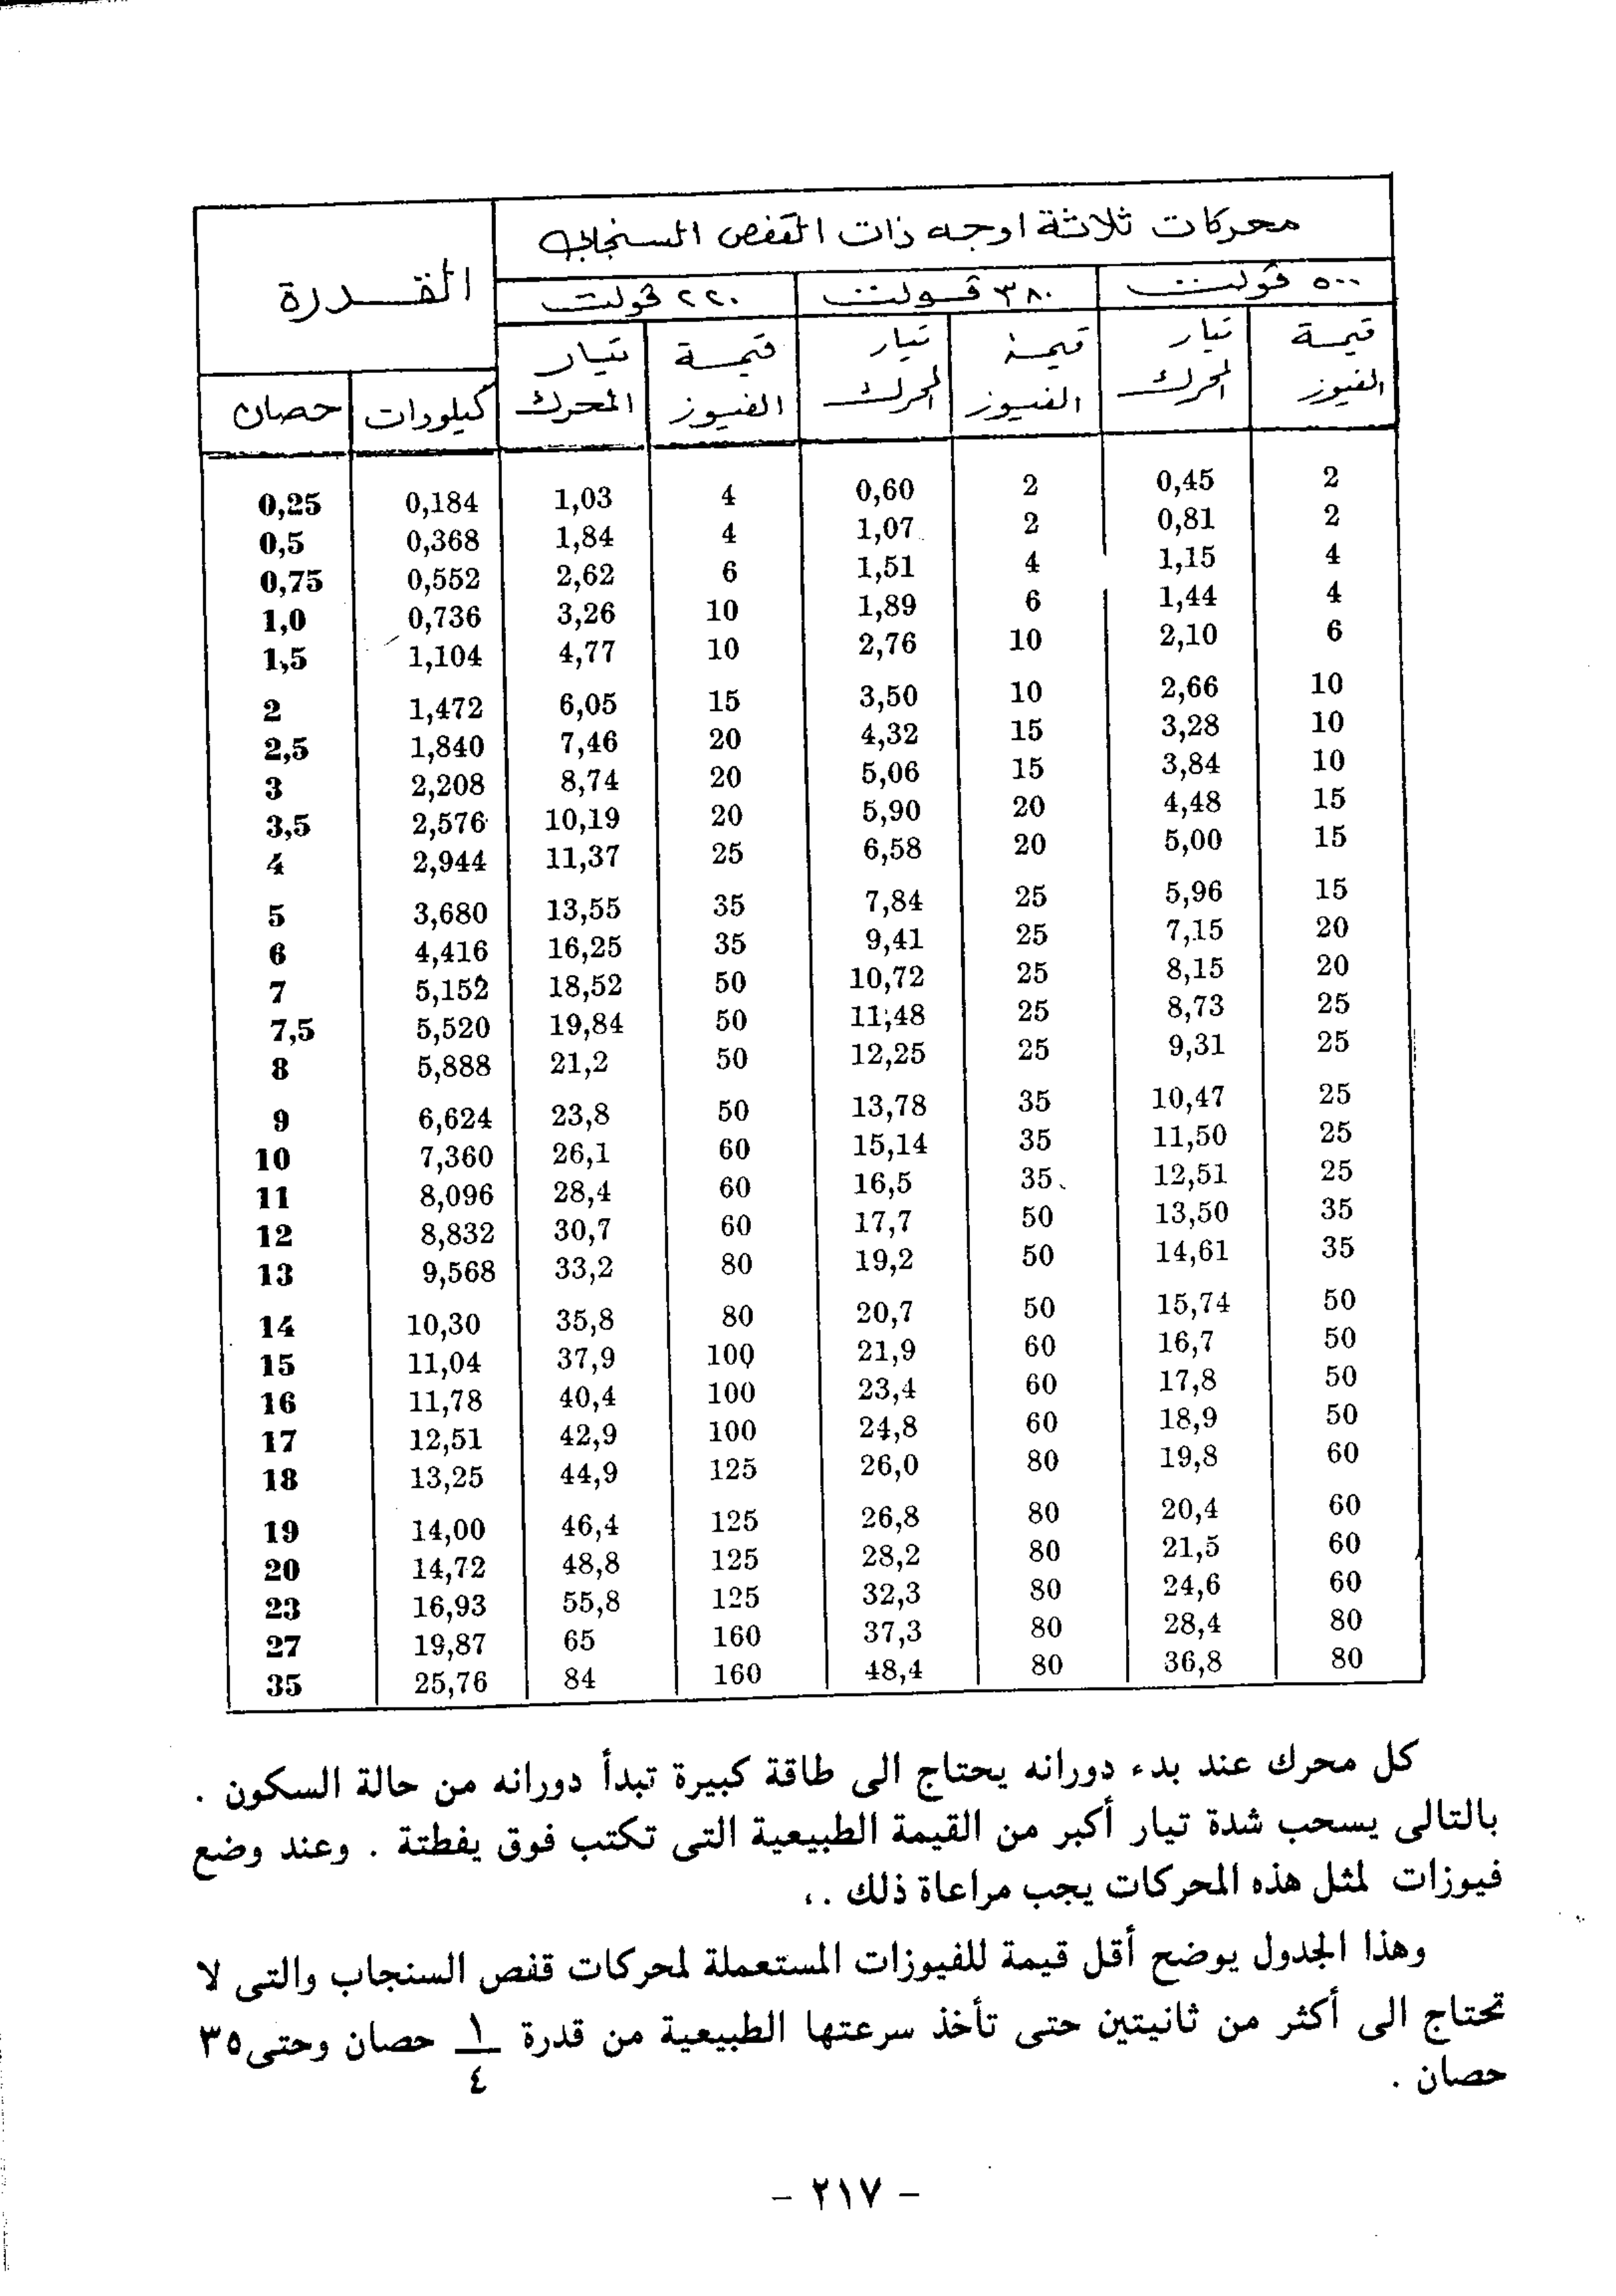 محركات ثلاثة اوجه ذات القفص السنجابى
القــدرة
٥٠٠ ڤولت ٣٨٠ ڤولت ٢٢٠ ڤولت
قيمة الفيوز تيار المحرك قيمة الفيوز تيار المحرك قيمة الفيوز تيار المحرك كيلووات حصان
0,25 0,184 1,03 4 0,60 2 0,45 2
0,5 0,368 1,84 4 1,07 2 0,81 2
0,75 0,552 2,62 6 1,51 4 1,15 4
1,0 0,736 3,26 10 1,89 6 1,44 4
1,5 1,104 4,77 10 2,76 10 2,10 6
2 1,472 6,05 15 3,50 10 2,66 10
2,5 1,840 7,46 20 4,32 15 3,28 10
3 2,208 8,74 20 5,06 15 3,84 10
3,5 2,576 10,19 20 5,90 20 4,48 15
4 2,944 11,37 25 6,58 20 5,00 15
5 3,680 13,55 35 7,84 25 5,96 15
6 4,416 16,25 35 9,41 25 7,15 20
7 5,152 18,52 50 10,72 25 8,15 20
7,5 5,520 19,84 50 11,48 25 8,73 25
8 5,888 21,2 50 12,25 25 9,31 25
9 6,624 23,8 50 13,78 35 10,47 25
10 7,360 26,1 60 15,14 35 11,50 25
11 8,096 28,4 60 16,5 35 12,51 25
12 8,832 30,7 60 17,7 50 13,50 35
13 9,568 33,2 80 19,2 50 14,61 35
14 10,30 35,8 80 20,7 50 15,74 50
15 11,04 37,9 100 21,9 60 16,7 50
16 11,78 40,4 100 23,4 60 17,8 50
17 12,51 42,9 100 24,8 60 18,9 50
18 13,25 44,9 125 26,0 80 19,8 60
19 14,00 46,4 125 26,8 80 20,4 60
20 14,72 48,8 125 28,2 80 21,5 60
23 16,93 55,8 125 32,3 80 24,6 60
27 19,87 65 160 37,3 80 28,4 80
35 25,76 84 160 48,4 80 36,8 80
كل محرك عند بدء دورانه يحتاج الى طاقة كبيرة تبدأ دورانه من حالة السكون .
بالتالى يسحب شدة تيار أكبر من القيمة الطبيعية التى تكتب فوق يفطتة . وعند وضع
فيوزات لمثل هذه المحركات يجب مراعاة ذلك ..،
وهذا الجدول يوضح أقل قيمة للفيوزات المستعملة لمحركات قفص السنجاب والتى لا
تحتاج الى أكثر من ثانيتين حتى تأخذ سرعتها الطبيعية من قدرة ١/٤ حصان وحتى ٣٥
حصان .
- ٢١٧ -